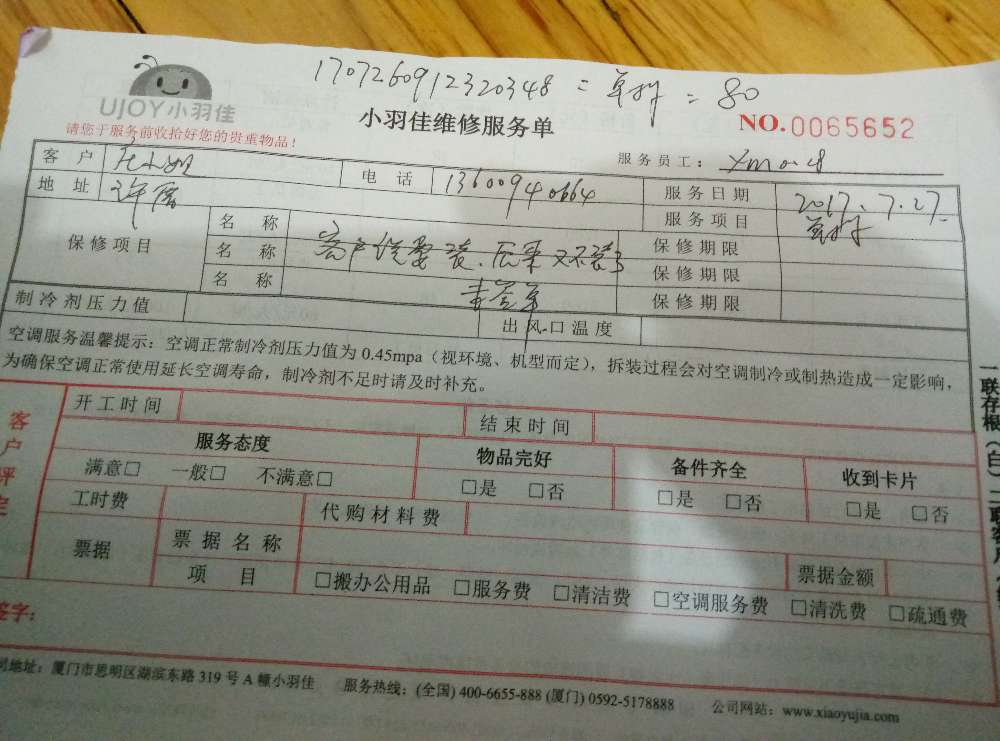 1707260912320348 = 单拆 = 80
UJOY小羽佳
小羽佳维修服务单
NO.0065652
请您于服务前收拾好您的贵重物品!
服务员工:
客户 小姐 电话 13600940664 服务日期 2017.7.27.
地址 服务项目 单拆
保修项目 名称 保修期限
名称 客户说要装、后来又不装了 保修期限
名称 保修期限
制冷剂压力值 出风口温度
空调服务温馨提示:空调正常制冷剂压力值为 0.45mpa(视环境、机型而定),拆装过程会对空调制冷或制热造成一定影响,
为确保空调正常使用延长空调寿命,制冷剂不足时请及时补充。
客户评定
开工时间 结束时间
服务态度 物品完好 备件齐全 收到卡片
满意□ 一般□ 不满意□ □是 □否 □是 □否 □是 □否
工时费 代购材料费
票据 票据名称 票据金额
项目 □搬办公用品 □服务费 □清洁费 □空调服务费 □清洗费 □疏通费
签字:
司地址:厦门市思明区湖滨东路 319 号 A 幢小羽佳 服务热线:(全国) 400-6655-888 (厦门) 0592-5178888 公司网站:www.xiaoyujia.com
一联存根(白)二联客